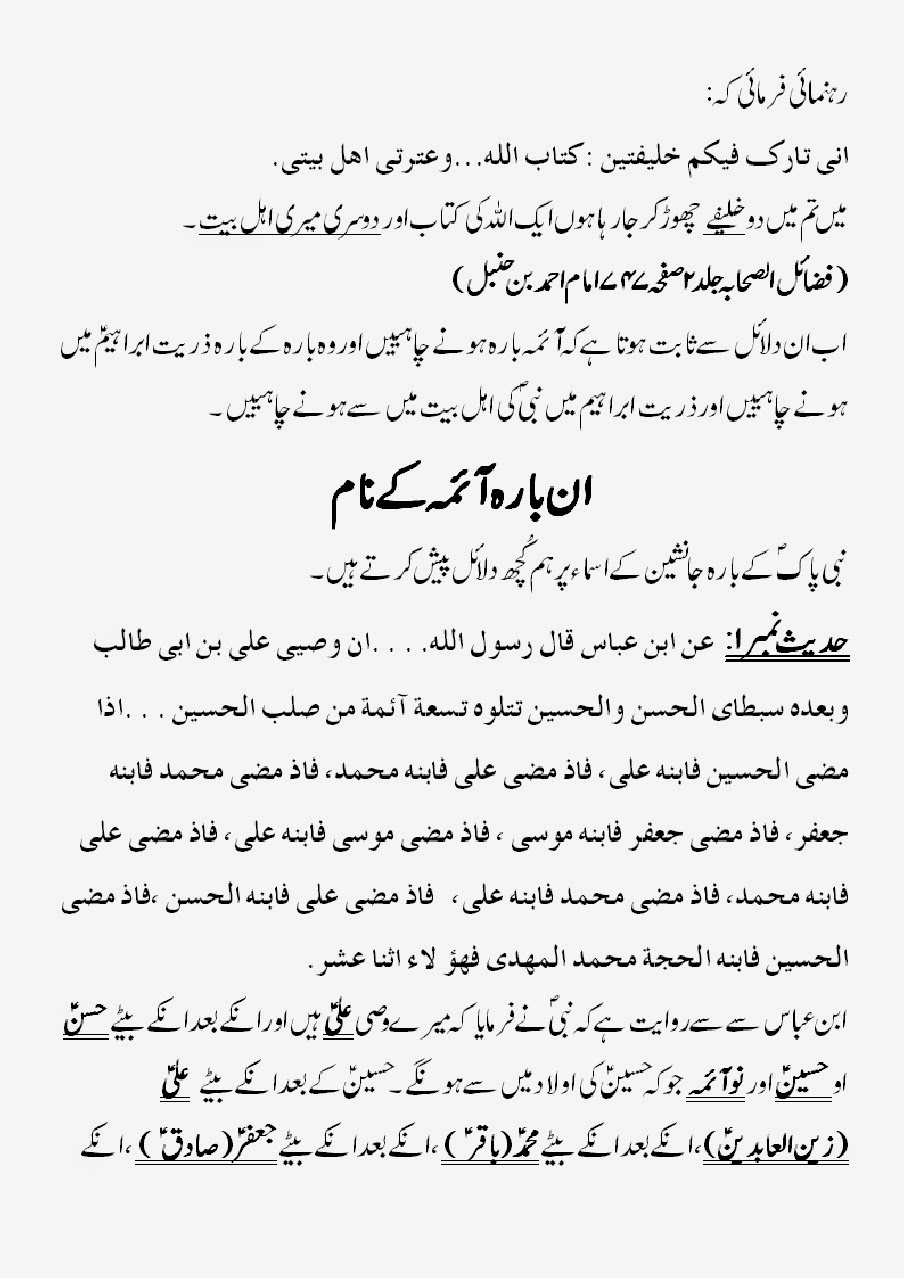 رہنمائی فرمائی کہ:
انی تارک فیکم خلیفتین :کتاب الله...وعترتی اهل بیتی.
میں تم میں دو خلیفے چھوڑ کر جا رہا ہوں ایک اللہ کی کتاب اور دوسری میری اہل بیت ۔
(فضائل الصحابہ جلد ۲ صفحہ ۷۴۷ امام احمد بن حنبل)
اب ان دلائل سے ثابت ہوتا ہے کہ آئمہ بارہ ہونے چاہییں اور وہ بارہ کے بارہ ذریت ابراہیمؑ میں
ہونے چاہییں اور ذریت ابراہیم میں نبیؐ کی اہل بیت میں سے ہونے چاہییں ۔
ان بارہ آئمہ کے نام
نبی پاکؐ کے بارہ جانشین کے اسماء پر ہم کُچھ دلائل پیش کرتے ہیں۔
حدیث نمبر ا: عن ابن عباس قال رسول الله. . . .ان وصیی علی بن ابی طالب
وبعده سبطای الحسن والحسین تتلوه تسعة آئمة من صلب الحسین . . .اذا
مضی الحسین فابنه علی، فاذ مضی علی فابنه محمد، فاذ مضی محمد فابنه
جعفر، فاذ مضی جعفر فابنه موسی ، فاذ مضی موسی فابنه علی، فاذ مضی علی
فابنه محمد، فاذ مضی محمد فابنه علی، فاذ مضی علی فابنه الحسن ،فاذ مضی
الحسین فابنه الحجة محمد المهدی فهؤ لاء اثنا عشر.
ابن عباس سے سے روایت ہے کہ نبیؐ نے فرمایا کہ میرے وصی علیؑ ہیں اور انکے بعد انکے بیٹے حسنؑ
او حسینؑ اور نو آئمہ جو کہ حسینؑ کی اولاد میں سے ہونگے ۔ حسینؑ کے بعد انکے بیٹے علیؑ
(زین العابدینؑ)، انکے بعد انکے بیٹے محمدؑ (باقرؑ) ، انکے بعد انکے بیٹے جعفرؑ (صادقؑ) ، انکے